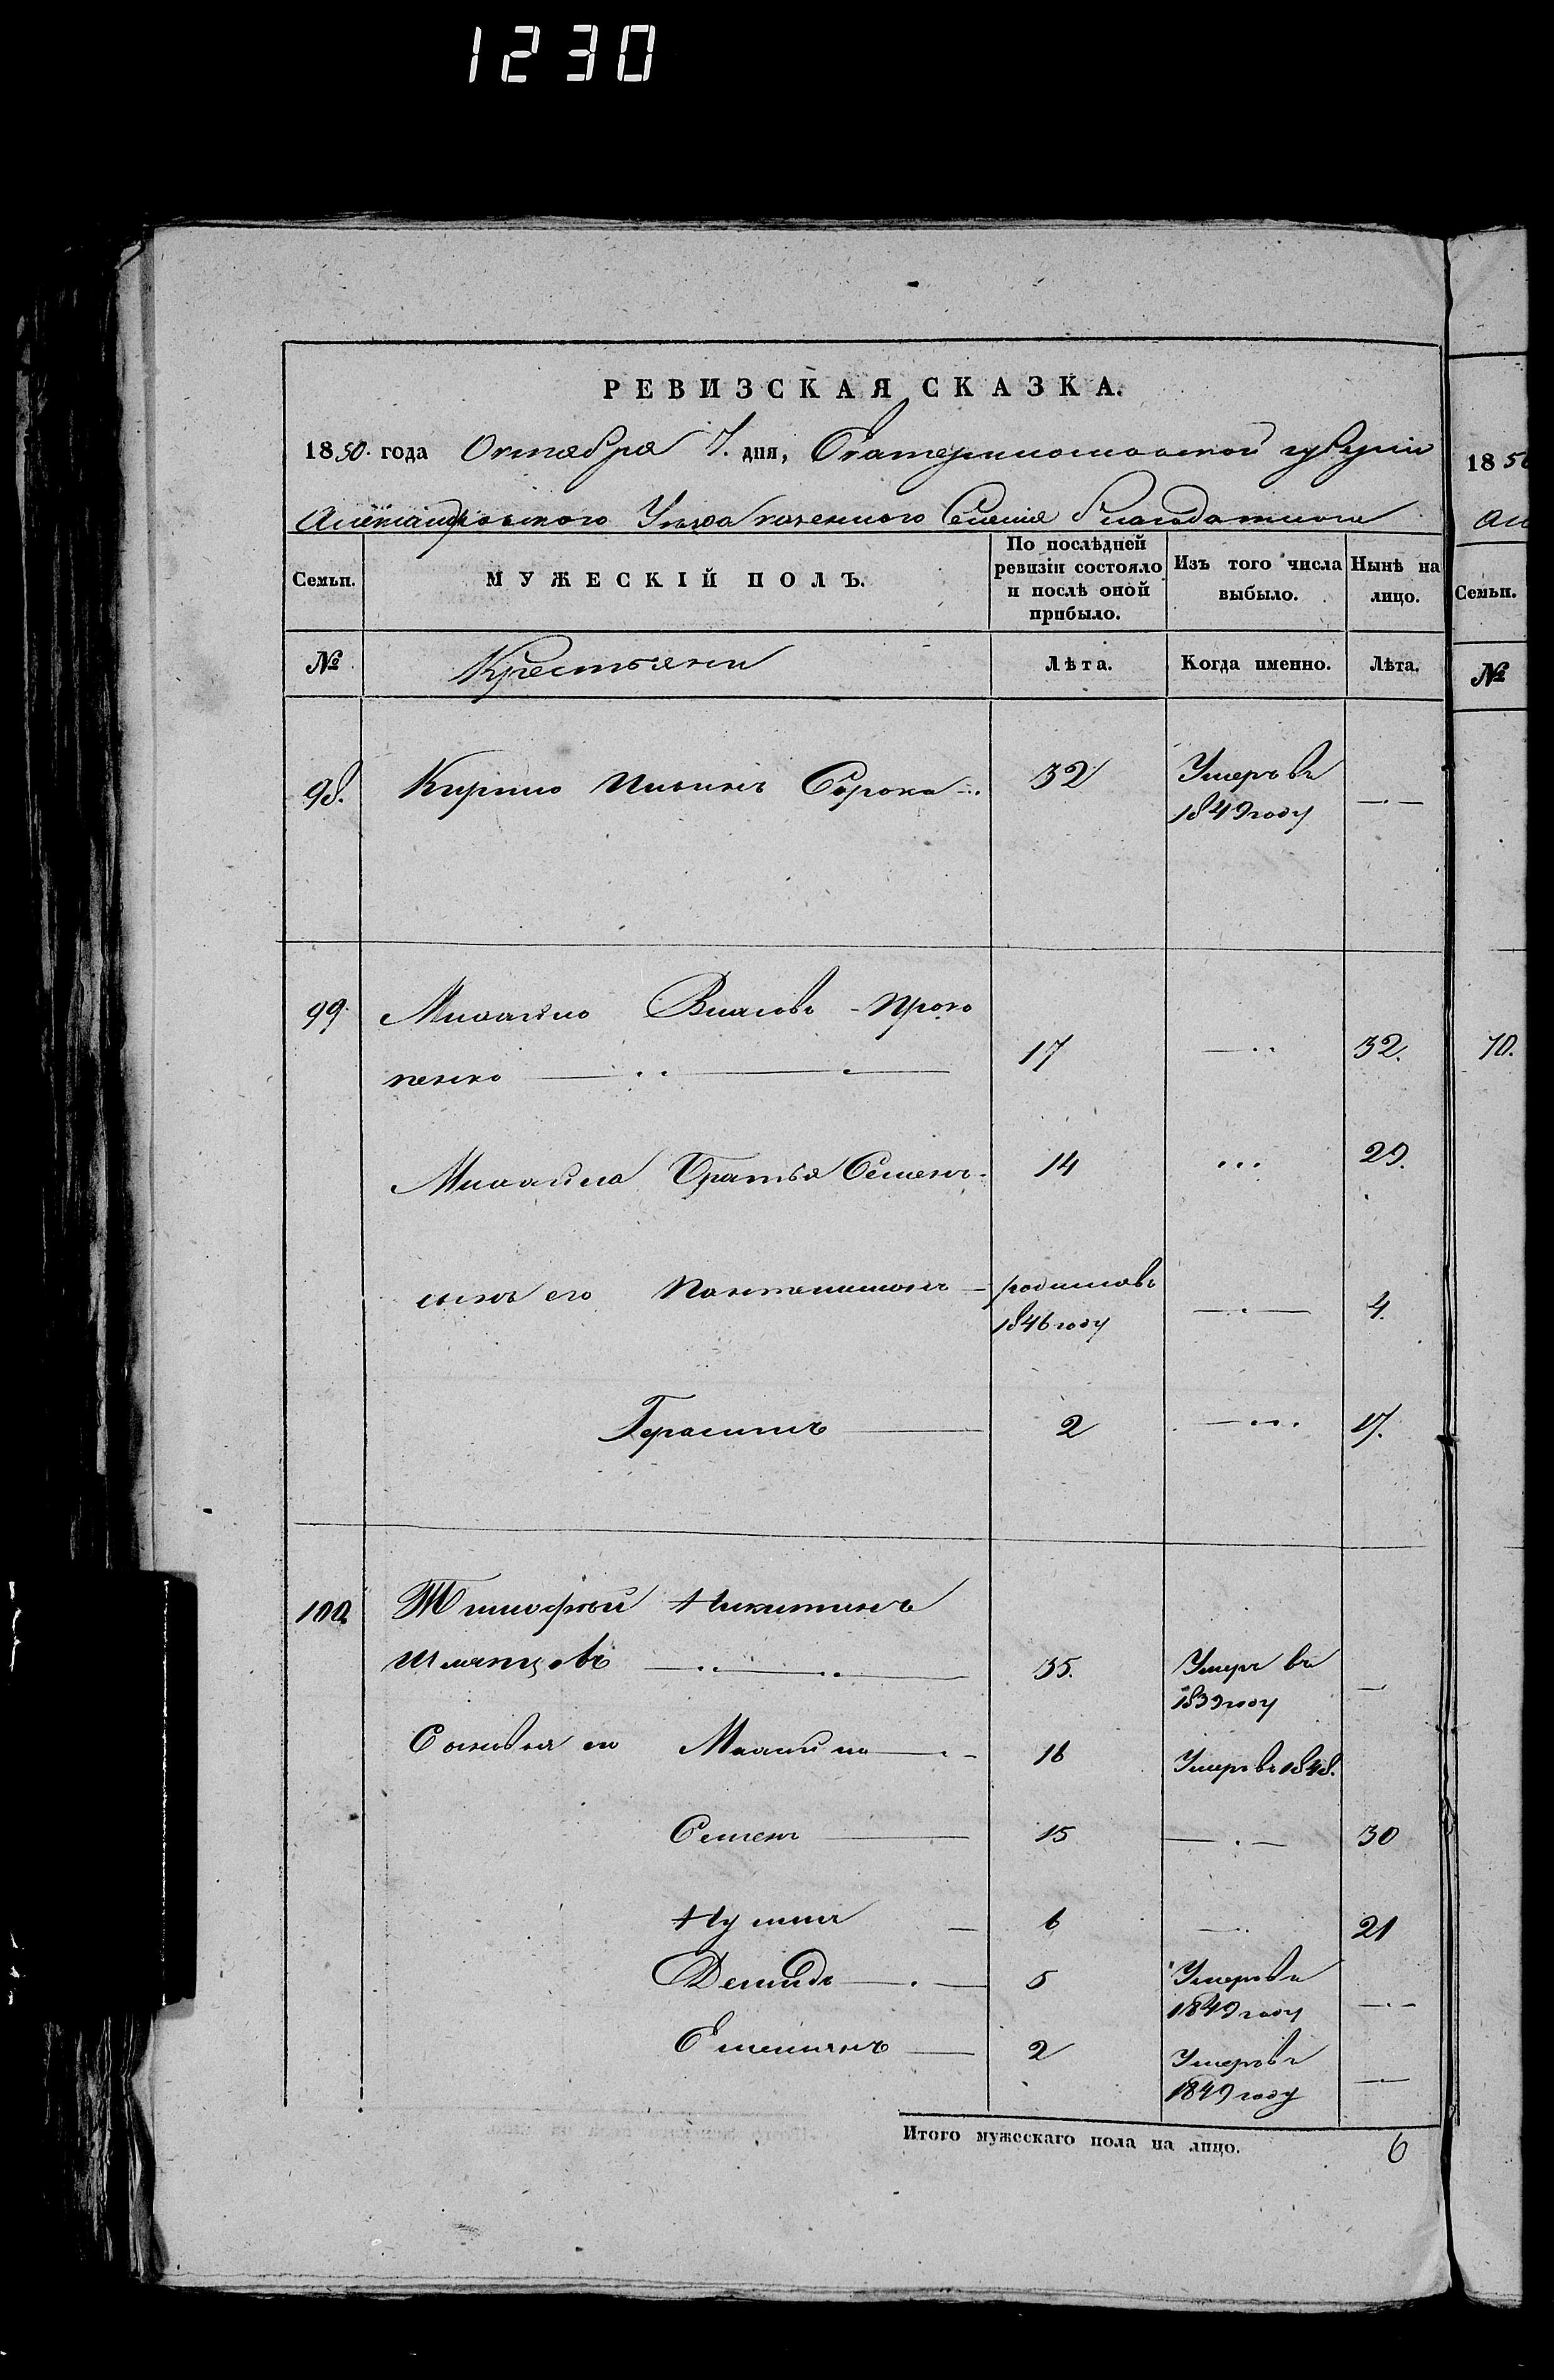 1230
РЕВИЗСКАЯ СКАЗКА.
1850. года Октября 7. дня, Екатеринославской губерніи
Александровского Уѣзда казенного Селенія Благодатного
Семьи. МУЖЕСКІЙ ПОЛЪ. По послѣдней ревизіи состояло и послѣ оной прибыло. Изъ того числа выбыло. Ныне на лицо.
№ Крестьяни Лѣта. Когда именно. Лѣта.
98. Кирило Ильинъ Сорока 32 Умеръ въ
1849 году
99. Михайло Власовъ Проко
пенко 17 32.
Михайла Братья Семенъ 14 29.
сынъ его Пантелимонъ родился въ
1846 году 4.
Герасимъ 2 17.
100. Тимофѣй Никитинъ
Шляпцовъ 35. Умеръ въ
1839 году
Сыновья его Михайло 16 Умеръ въ 1848.
Семенъ 15 30
Наумъ 6 21
Демидъ 5 Умеръ въ
1849 году
Емельянъ 2 Умеръ въ
1849 году
Итого мужескаго пола на лицо. 6
1850
Семьи.
№
70.